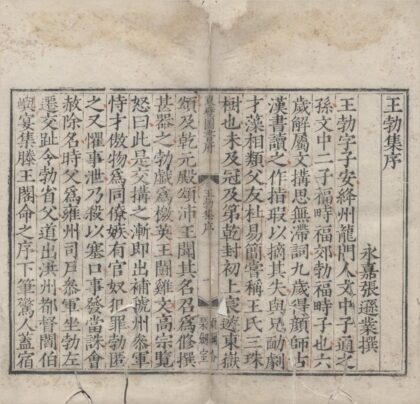 王勃集序
永嘉張遜業撰
王勃字子安絳州龍門人文中子通之
孫文中二子福畤福郊勃福畤子也六
歲解屬文搆思無滯詞九歲得顏師古
漢書讀之作指瑕以摘其失與兄勔勮
才藻相類父友杜易簡嘗稱王氏三珠
樹也未及冠及第乾封初上宸遊東嶽
東壁圖書府 王勃集序 一
頌及乾元殿頌沛王聞其名召爲修撰
甚器之勃戲爲檄英王鬬雞文高宗覽
怒曰此是交搆之漸即出補虢州叅軍
恃才傲物爲同僚嫉有官奴犯罪勃匿
之又懼事泄乃殺以塞口事發當誅會
赦除名時父爲雍州司戸叅軍坐勃左
遷交趾令勃省父道出洪州都督閻伯
嶼宴集滕王閣命之序下筆驚人蓋宿